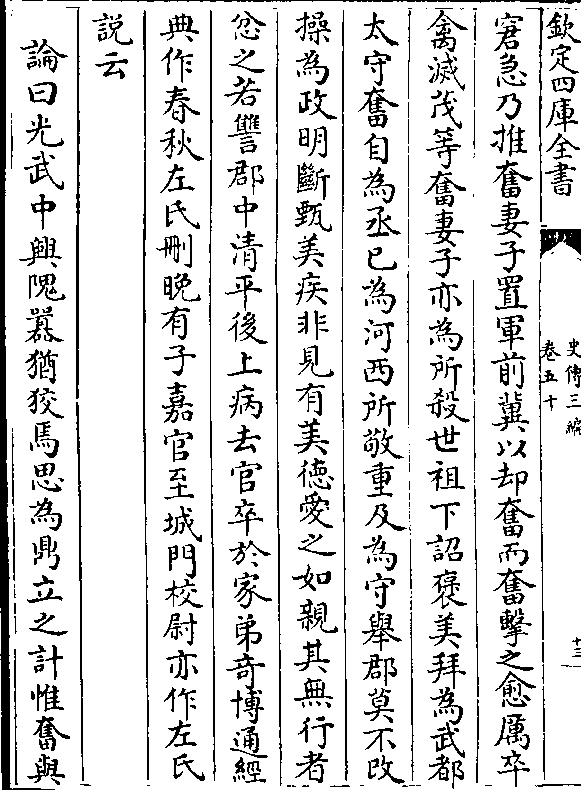 欽定四庫全書
史傳三編
卷五十
十三
窘急乃推奮妻子置軍前冀以却奮而奮擊之愈厲卒
禽滅茂等奮妻子亦為所殺世祖下詔褒美拜為武都
太守奮自為丞已為河西所敬重及為守舉郡莫不改
操為政明斷甄美疾非見有美德愛之如親其無行者
忿之若讐郡中清平後上病去官卒於家弟奇博通經
典作春秋左氏刪晚有子嘉官至城門校尉亦作左氏
説云
論曰光武中興隗囂猶狡焉思為鼎立之計惟奮與